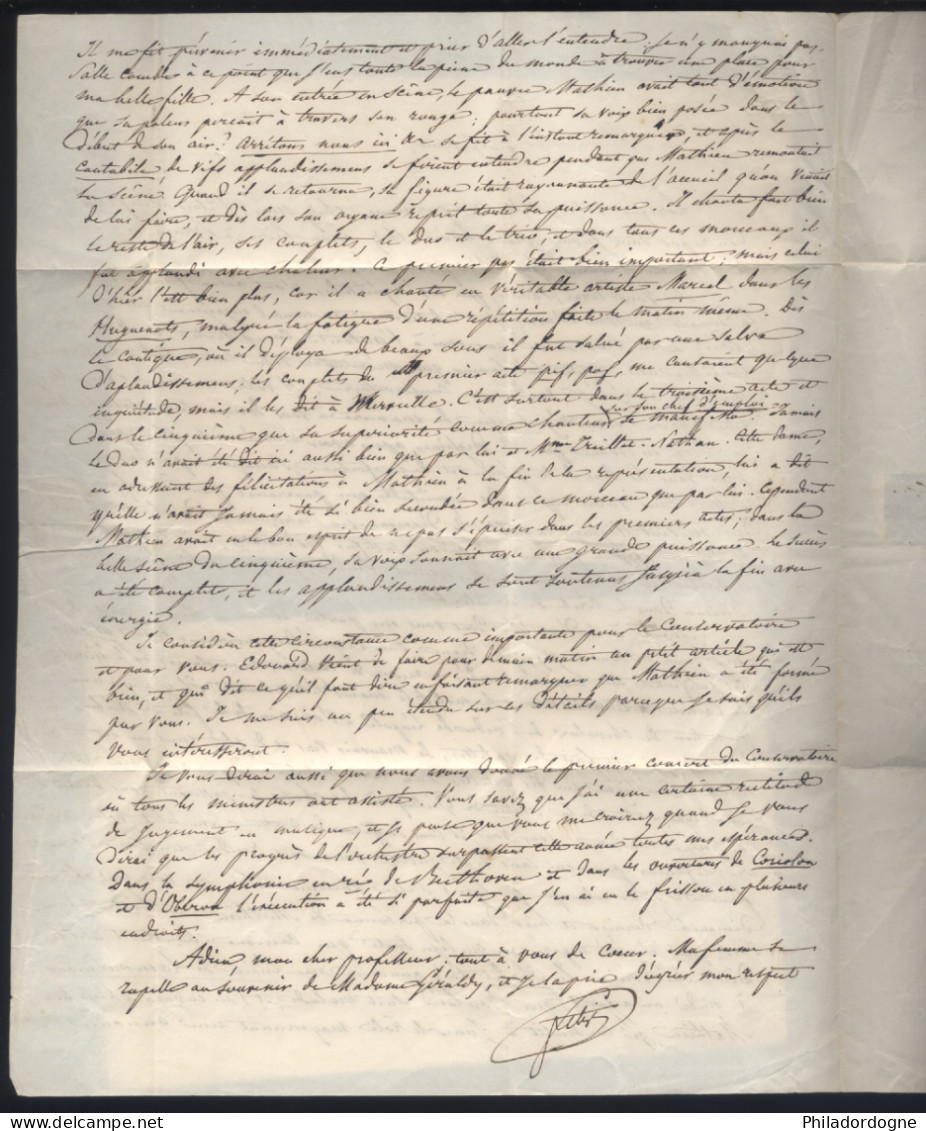 Il me fit prévenir immédiatement et prier d'aller l'entendre. Je n'y manquai pas.
Salle comble à ce point que j'eus toute la peine du monde à trouver une place pour
ma belle fille. A son entrée en scène, le pauvre Mathieu avait tant d'émotion
que sa paleur perçait à travers son rouge; pourtant sa voix bien posée dans le
début de son air: Arrêtons nous ici &c se fit à l'instant remarquer, et après le
cantabile de vifs applaudissemens se firent entendre pendant que Mathieu remontait
la scène. Quand il se retourna, sa figure était rayonnante de l'accueil qu'on venait
de lui faire, et dès lors son organe reprit toute sa puissance. Il chanta fort bien
le reste de l'air, ses couplets, le duo et le trio, et dans tous ces morceaux il
fut applaudi avec chaleur. Ce premier pas était bien important; mais celui
d'hier l'est bien plus, car il a chanté en véritable artiste Marcel dans les
Huguenots, malgré la fatigue d'une répétition faite le matin même. Dès
le cantique, où il déploya de beaux sons il fut salué par une salve
d'aplaudissemens; les couplets du premier acte pif, paf, me causaient quelque
inquiétude, mais il les dit à merveille. C'est surtout dans le troisième acte et
dans le cinquième que sa supériorité comme chanteur sur son chef d'emploi se manifesta. Jamais
le duo n'avait été dit ici aussi bien que par lui et Mme Treillet-Nathan. Cette dame,
en adressant des félicitations à Mathieu à la fin de la représentation, lui a dit
qu'elle n'avait jamais été si bien secondée dans ce morceau que par lui. Cependant
Mathieu avait eu le bon esprit de ne pas s'épuiser dans les premiers actes; dans la
belle scène du cinquième, sa voix sonnait avec une grande puissance. Le succès
a été complet, et les applaudissemens se sont soutenus jusqu'à la fin avec
énergie.
Je considère cette circonstance comme importante pour le Conservatoire
et pour vous. Edouard vient de faire pour demain matin un petit article qui est
bien, et qui dit ce qu'il faut dire en faisant remarquer que Mathieu a été formé
par vous. Je me suis un peu étendu sur les détails parceque je sais qu'ils
vous intéresseront.
Je vous dirai aussi que nous avons donné le premier concert du Conservatoire
où tous les ministres ont assisté. Vous savez que j'ai une certaine rectitude
de jugement en musique, et je pense que vous me croirez quand je vous
dirai que les progrès de l'orchestre surpassent cette année toutes mes espérances.
Dans la symphonie en ré de Beethoven et dans les ouvertures de Coriolan
et d'Oberon l'exécution a été si parfaite que j'en ai eu le frisson en plusieurs
endroits.
Adieu mon cher professeur; tout à vous de cœur. Ma femme se
rapelle au souvenir de Madame Géraldy, et je la prie d'agréer mon respect
Fétis
Philadordogne